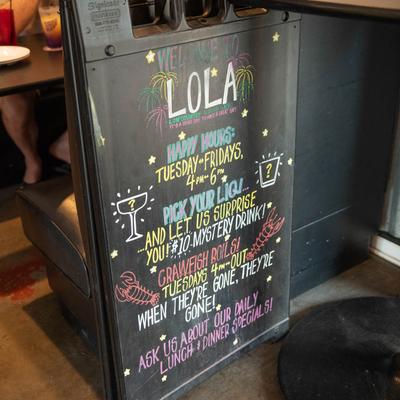 WELCOME TO
LOLA
HAPPY HOURS:
TUESDAY - FRIDAYS,
4PM - 6PM
PICK YOUR LIQU...
...AND LET US SURPRISE
YOU! #10 MYSTERY DRINK!
CRAWFISH BOILS!
TUESDAYS 4PM - OUT
WHEN THEY'RE GONE, THEY'RE
GONE!
ASK US ABOUT OUR DAILY
LUNCH & DINNER SPECIALS!
?
?